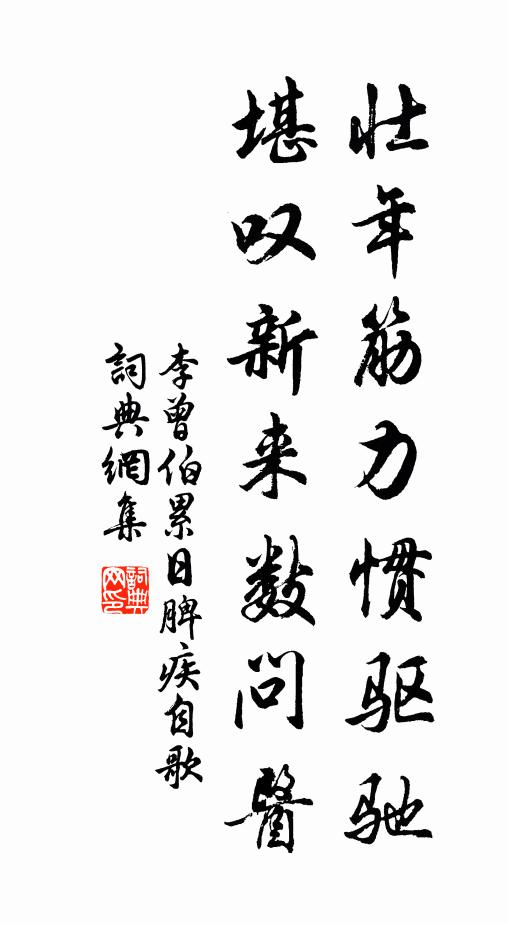 壮年筋力惯驱驰
堪叹新来数问醫
李曾伯累日脾疾自歌
詞典網集
詞典网印